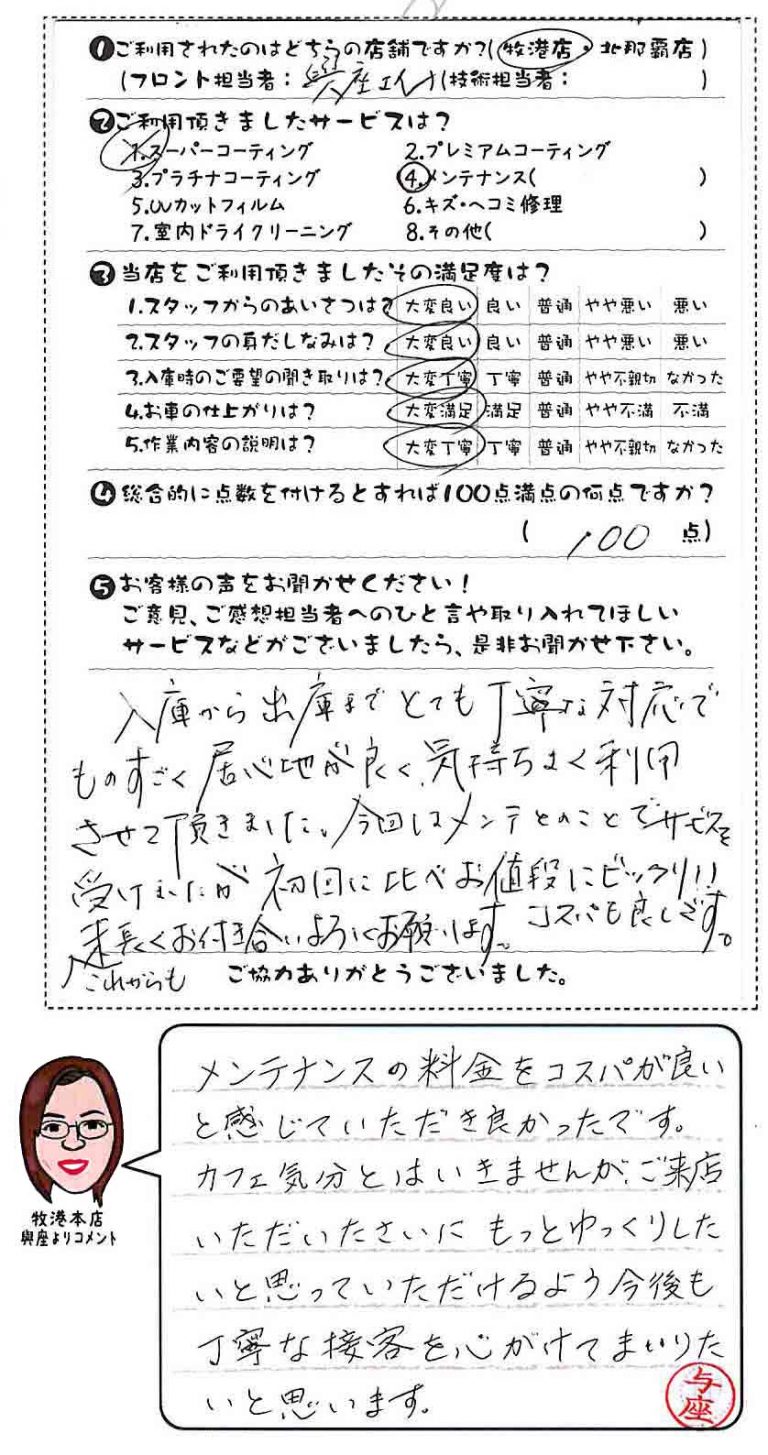 ❶ご利用されたのはどちらの店舗ですか?(牧港店・北那覇店)
(フロント担当者:與座さん)(技術担当者: )
❷ご利用頂きましたサービスは?
1.スーパーコーティング 2.プレミアムコーティング
3.プラチナコーティング 4.メンテナンス( )
5.UVカットフィルム 6.キズ・ヘコミ修理
7.室内ドライクリーニング 8.その他( )
❸当店をご利用頂きましたその満足度は?
1.スタッフからのあいさつは? 大変良い 良い 普通 やや悪い 悪い
2.スタッフの身だしなみは? 大変良い 良い 普通 やや悪い 悪い
3.入庫時のご要望の聞き取りは? 大変丁寧 丁寧 普通 やや不親切 なかった
4.お車の仕上がりは? 大変満足 満足 普通 やや不満 不満
5.作業内容の説明は? 大変丁寧 丁寧 普通 やや不親切 なかった
❹総合的に点数を付けるとすれば100点満点の何点ですか?
( 100 点)
❺お客様の声をお聞かせください!
ご意見、ご感想担当者へのひと言や取り入れてほしい
サービスなどがございましたら、是非お聞かせ下さい。
入庫から出庫までとても丁寧な対応で
ものすごく居心地が良く、気持ちよく利用
させて頂きました。今回はメンテとのことでサービスを
受けましたが初回に比べお値段にビックリ!!
コスパも良しです。
これからも
末長くお付き合いよろしくお願いします。
ご協力ありがとうございました。
メンテナンスの料金をコスパが良い
と感じていただき良かったです。
カフェ気分とはいきませんが、ご来店
いただいたさいに もっとゆっくりした
いと思っていただけるよう今後も
丁寧な接客を心がけてまいりた
いと思います。
与座
牧港本店
與座よりコメント